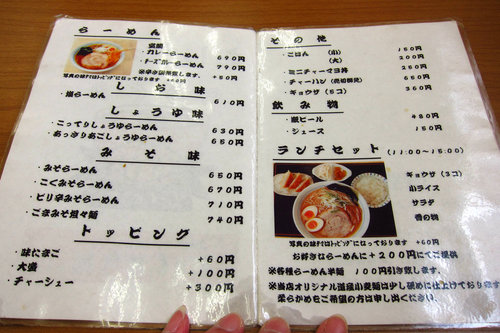 らーめん
カレーらーめん 690円
チーズカレーらーめん 790円
※辛さ調整致します。 +50円
写真の味付けはトッピングになっております
しお味
塩らーめん 610円
しょうゆ味
・こってりしょうゆらーめん 630円
・あっさりあごしょうゆらーめん 650円
みそ味
・みそらーめん 650円
・こくみそらーめん 670円
・ピリ辛みそらーめん 710円
・ごまみそ坦々麺 740円
トッピング
・味たまご +60円
・大盛 +100円
・チャーシュー +300円
その他
・ごはん (小) 150円
(大) 200円
・ミニチャーマヨ丼 250円
・チャーハン 650円
・ギョウザ (5コ) 360円
飲み物
・瓶ビール 480円
・ジュース 150円
ランチセット (11:00~15:00)
ギョウザ (3コ)
小ライス
サラダ
香の物
写真の味付はトッピングになっております +60円
お好きならーめんに+200円にてご提供
※各種らーめん半麺 100円引き致します。
※当店オリジナル道産小麦麺は少し硬めに仕上げており
柔らかめをご希望の方は申し出ください。